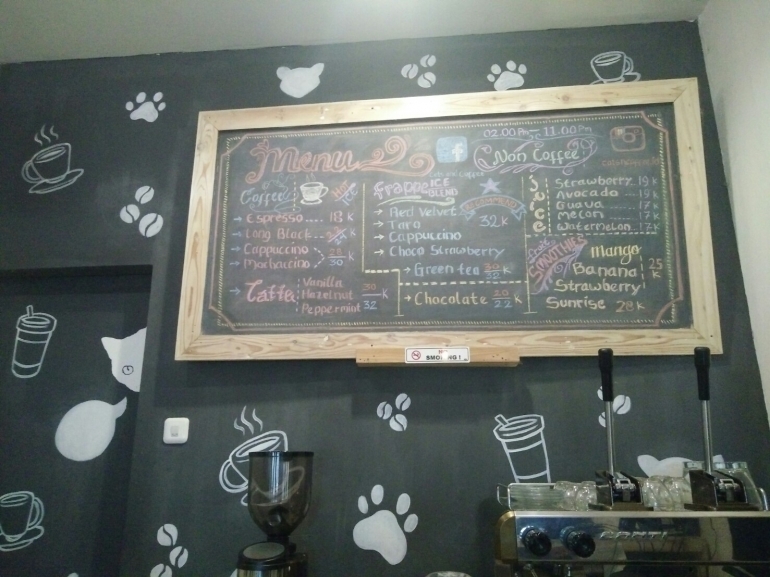 Menu
f
02.00 Pm 11.00 Pm
Non Coffee
Coffee
Espresso .... 18 K
Long Black
Cappuccino
Mochaccino 30 K
Latte
Vanilla 30
Hazelnut K
Peppermint 32
Frappe ICE BLEND
Red Velvet
Taro
Cappuccino 32 K
Choco Strawberry
Green tea 30 32 K
Chocolate 20 22 K
Juice
Strawberry 19 K
Avocado 19 K
Guava 17 K
Melon 17 K
Watermelon 17 K
SMOOTHIES
Mango
Banana 25 K
Strawberry
Sunrise 28 K
NO SMOKING!